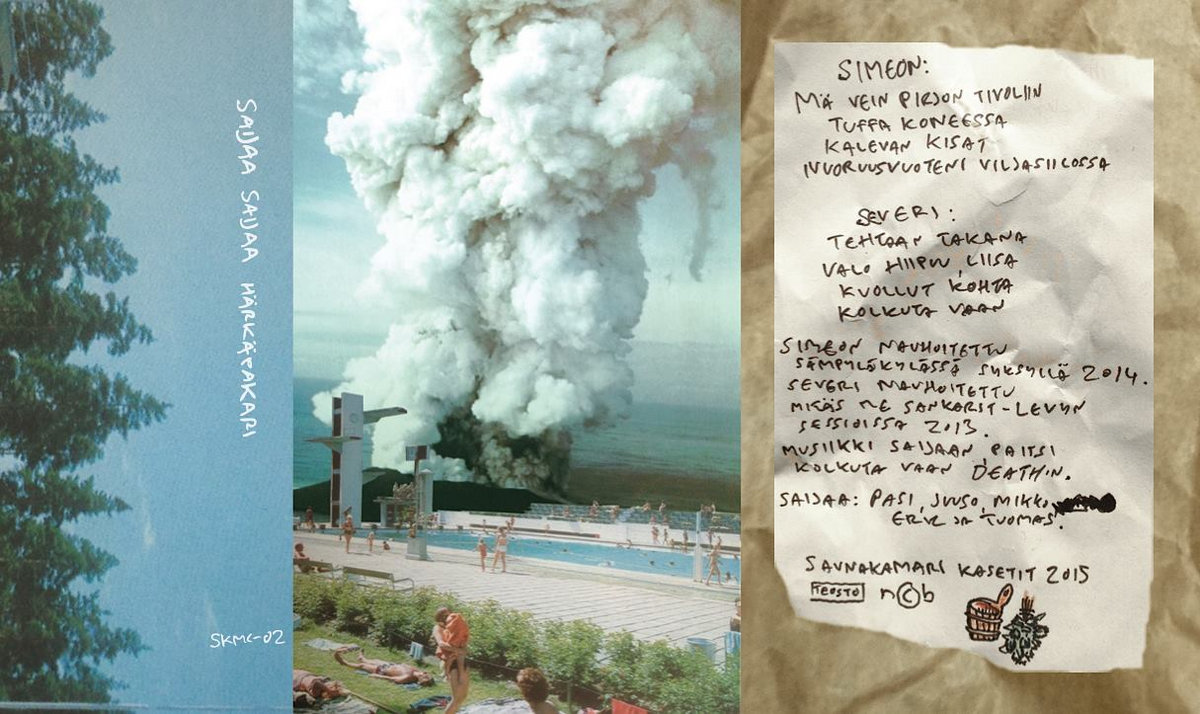 SAIJAA SAIJAA HÄRKÄPAKARI
SKMC-02
SIMEON:
MÄ VEIN PIRJON TIVOLIIN
TUFFA KONEESSA
KALEVAN KISAT
NUORUUSVUOTENI VILJASIILOSSA
SEVERI:
TEHTAAN TAKANA
VALO HIIPUU, LIISA
KUOLLUT KOHTA
KOLKUTA VAAN
SIMEON NAUHOITETTU
SÄMPYLÄKYLÄSSÄ SYKSYLLÄ 2014.
SEVERI NAUHOITETTU
MIKÄS ME SANKARIT-LEVYN
SESSIOISSA 2013.
MUSIIKKI SAIJAAN PAITSI
KOLKUTA VAAN DEATHIN.
SAIJAA: PASI, JUUSO, MIKKO,
ERIK JA TUOMAS.
SAUNAKAMARI KASETIT 2015
TEOSTO n©b